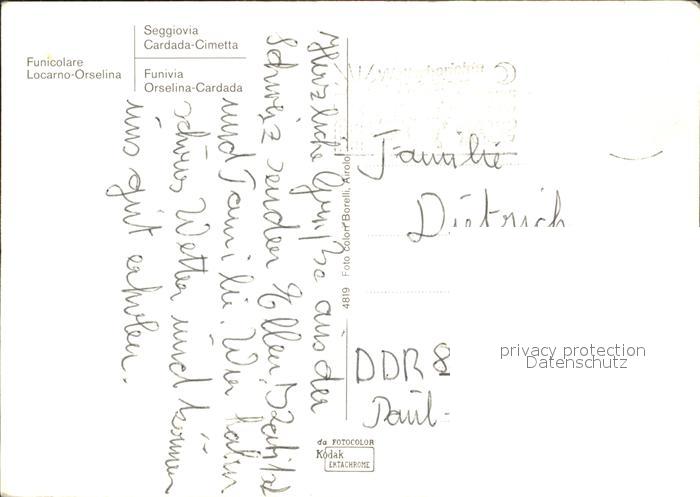 Funicolare
Locarno-Orselina
Seggiovia
Cardada-Cimetta
Funivia
Orselina-Cardada
Herzliche Grüße aus der
Schweiz senden Ellen,
und Familie. Wir haben
schönes Wetter und können
uns gut erholen.
4819 Foto colori Borelli, Airolo
Familie
Dietrich
DDR 8
Paul-
privacy protection
Datenschutz
da FOTOCOLOR
Kodak
EKTACHROME